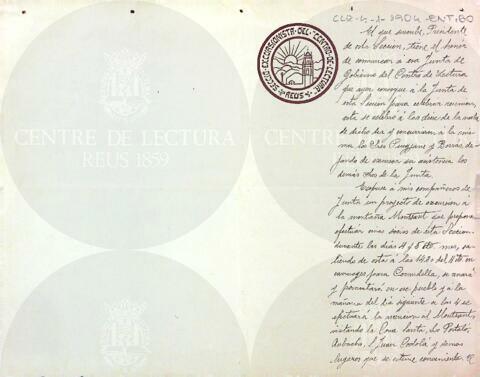 CLR-4-1-1904-ENT.60
SECCIÓ EXCURSIONISTA DEL "CENTRO DE LECTURA"
REUS
CENTRE DE LECTURA
REUS 1859
El que suscribe, Presidente
de esta Sección, tiene el honor
de comunicar á esa Junta de
Gobierno del Centro de Lectura
que ayer convoqué á la Junta de
esta Sección para celebrar reunión,
esta se celebró á las doce de la noche
de dicho día y concurrieron á la mis
ma los Sres Puigjané y Borrás de-
jando de excusar su asistencia los
demás Sres de la Junta.
Expuse á mis compañeros de
Junta un proyecto de excursión á
la montaña Montsant que propone
efectuar unos socios de esta Sección
durante los días 4 y 5 del mes, sa-
liendo de esta á las 14,20 del 4 en
carruajes para Cornudella, se cenará
y pernoctará en ese pueblo y á la
mañana del día siguiente á las 4 se
efectuará la ascensión al Montsant,
visitando la Cova Santa, Lo Portaló,
S. Juan Codolá y demás
lugares que se estime conveniente. El